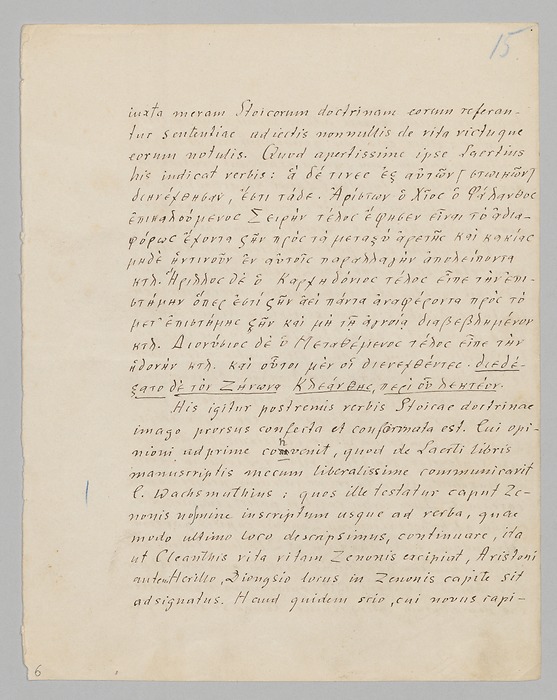 15
iuxta meram Stoicorum doctrinam eorum referan-
tur sententiae adiectis nonnullis de vita victuque
eorum notulis. Quod apertissime ipse Laertius
his indicat verbis: ἃ δέ τινες ἐξ αὐτῶν [στωικῶν]
διηνέχθησαν, ἔστι τάδε. Ἀρίστων ὁ Χῖος ὁ Φάλανθος
ἐπικαλούμενος Σειρὴν τέλος ἔφησεν εἶναι τὸ ἀδια-
φόρως ἔχοντα ζῆν πρὸς τὰ μεταξὺ ἀρετῆς καὶ κακίας
μηδὲ ἡντινοῦν ἐν αὐτοῖς παραλλαγὴν ἀπολείποντα
κτλ. Ἥριλλος δὲ ὁ Καρχηδόνιος τέλος εἶπε τὴν ἐπι-
στήμην ὅπερ ἐστὶ ζῆν ἀεὶ πάντα ἀναφέροντα πρὸς τὸ
μετ' ἐπιστήμης ζῆν καὶ μὴ τῇ ἀγνοίᾳ διαβεβλημένον
κτλ. Διονύσιος δὲ ὁ Μεταθέμενος τέλος εἶπε τὴν
ἡδονὴν κτλ. καὶ οὗτοι μὲν οἱ διενεχθέντες. διεδέ-
ξατο δὲ τὸν Ζήνωνα Κλεάνθης, περὶ οὗ λεκτέον.
His igitur postremis verbis Stoicae doctrinae
imago prorsus confecta et conformata est. Cui opi-
nioni adprime convenit, quod de Laerti libris
manuscriptis mecum liberalissime communicavit
C. Wachsmuthius: quos ille testatur caput Ze-
nonis nomine inscriptum usque ad verba, quae
modo ultimo loco descripsimus, continuare, ita
ut Cleanthis vita vitam Zenonis excipiat, Aristoni
autem Herillo, Dionysio locus in Zenonis capite sit
adsignatus. Haud quidem scio, cui novus capi-
6